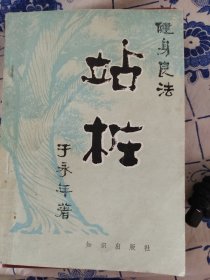 健身良法
站桩
于永年著
知识出版社